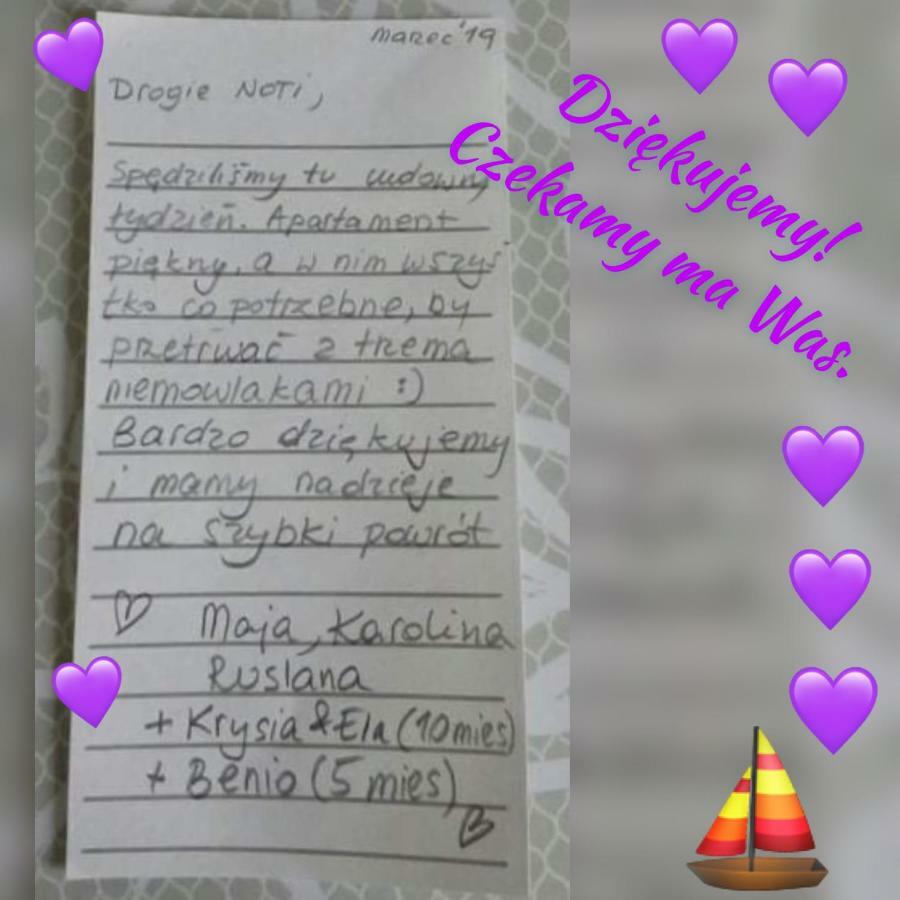 marzec '19
Drogie NOTI,
Spędziliśmy tu cudowny
tydzień. Apartament
piękny, a w nim wszys
tko co potrzebne, by
przetrwać z trzema
niemowlakami :)
Bardzo dziękujemy
i mamy nadzieje
na szybki powrót
♡ Maja, Karolina
Ruslana
+ Krysia & Ela (10 mies)
+ Benio (5 mies)
Dziękujemy!
Czekamy ma Was.